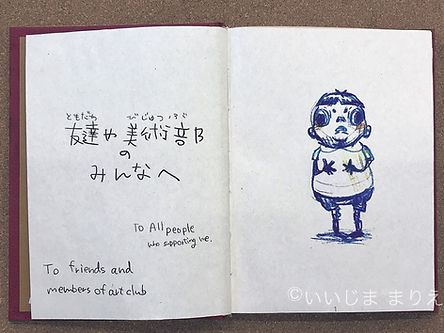 ともだち びじゅつぶ
友達や美術部
の
みんなへ
To All people
who supporting me.
To friends and
members of art club
1
©いいじま まりえ